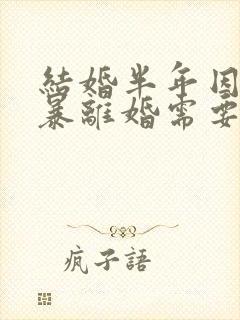 結婚半年因
暴離婚需要
瘋子語